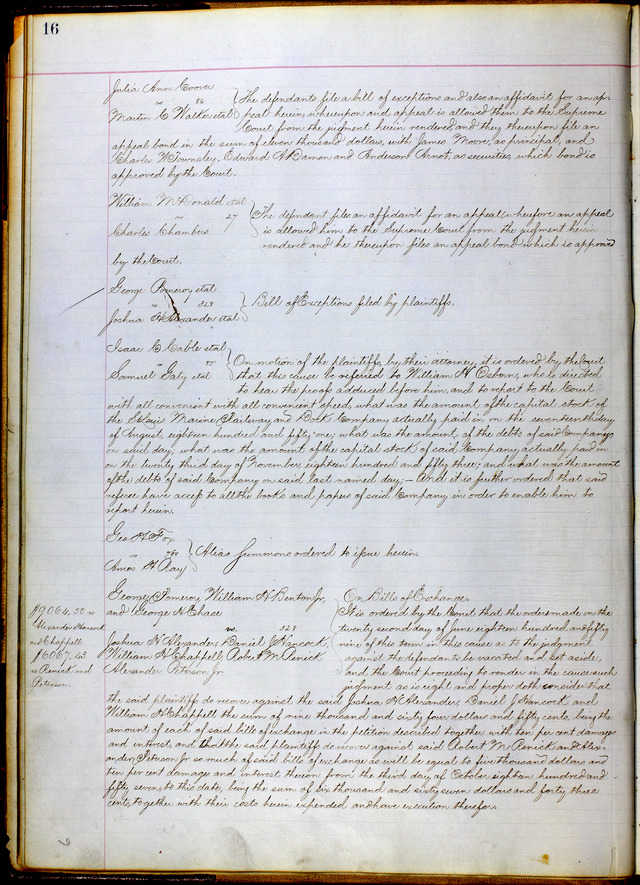 16
Julia Ann Coover
vs 86
Martin C Walker etal
The defendants file a bill of exceptions and also an affidavit for an ap-
peal herein, whereupon and appeal is allowed them to the Supreme
Court from the judgment herein rendered, and they thereupon file an
appeal bond in the sum of eleven thousand dollars, with James Moore, as principal, and
Charles W Townsley, Edward A Damon and Anderson Arnot, as securities, which bond is
approved by the Court.
William McDonald etal
vs 27
Charles Chambers
The defendant files an affidavit for an appeal wherefore an appeal
is allowed him to the Supreme Court from the judgment herein
rendered and he thereupon files an appeal bond which is approved
by the Court.
George Pomeroy etal
vs 328
Joshua H Alexander etal
Bill of Exceptions filed by plaintiffs.
Isaac C Cable etal
vs
Samuel Gaty etal
On motion of the plaintiffs, by their attorney, it is ordered by the Court
that this cause be referred to William N Osborn, who is directed
to hear the proofs adduced before him, and to report to the Court
with all convenient with all convenient speed, what was the amount of the capital stock of
the St Louis Marine Railway and Dock Company actually paid in on the seventeenth day
of August, eighteen hundred and fifty one; what was the amount of the debts of said Company
on said day; what was the amount of the capital stock of said Company actually paid in
on the twenty third day of November eighteen hundred and fifty three; and what was the amount
of the debts of said Company on said last named day;– And it is further ordered that said
referee have access to all the books and papers of said Company in order to enable him to
report herein.
Geo H Fox
vs
Amos H Ray
Alias Summons ordered to issue herein.
George Pomeroy, William H Benton Jr,
and George N Chase
vs. 328
Joshua H Alexander, Daniel J Hancock,
William H Chappell, Robert M Renick
Alexander Peterson Jr
On Bills of Exchange.
It is ordered by the Court that the order made on the
twenty second day of June eighteen hundred and fifty
nine of this term in this cause as to the judgment
against the defendants be vacated and set aside,
and the Court proceeding to render in the cause such
judgment as is right and proper doth consider that
the said plaintiffs do recover against the said Joshua H Alexander, Daniel J Hancock and
William H Chappell the sum of nine thousand and sixty four dollars and fifty cents, being the
amount of each of said bills of exchange in the petition described together with ten per cent damages
and interest, and that the said plaintiffs do recover against said Robert M Renick and Alex-
ander Peterson Jr so much of said bills of exchange as will be equal to five thousand dollars and
ten per cent damages and interest thereon from the third day of October eighteen hundred and
fifty seven, to this date, being the sum of six thousand and sixty seven dollars and forty three
cents, together with their costs herein expended and have execution therefor.
$9064.50 vs
Alexander Hancock
and Chappell
$6067.43
vs Renick and
Peterson.